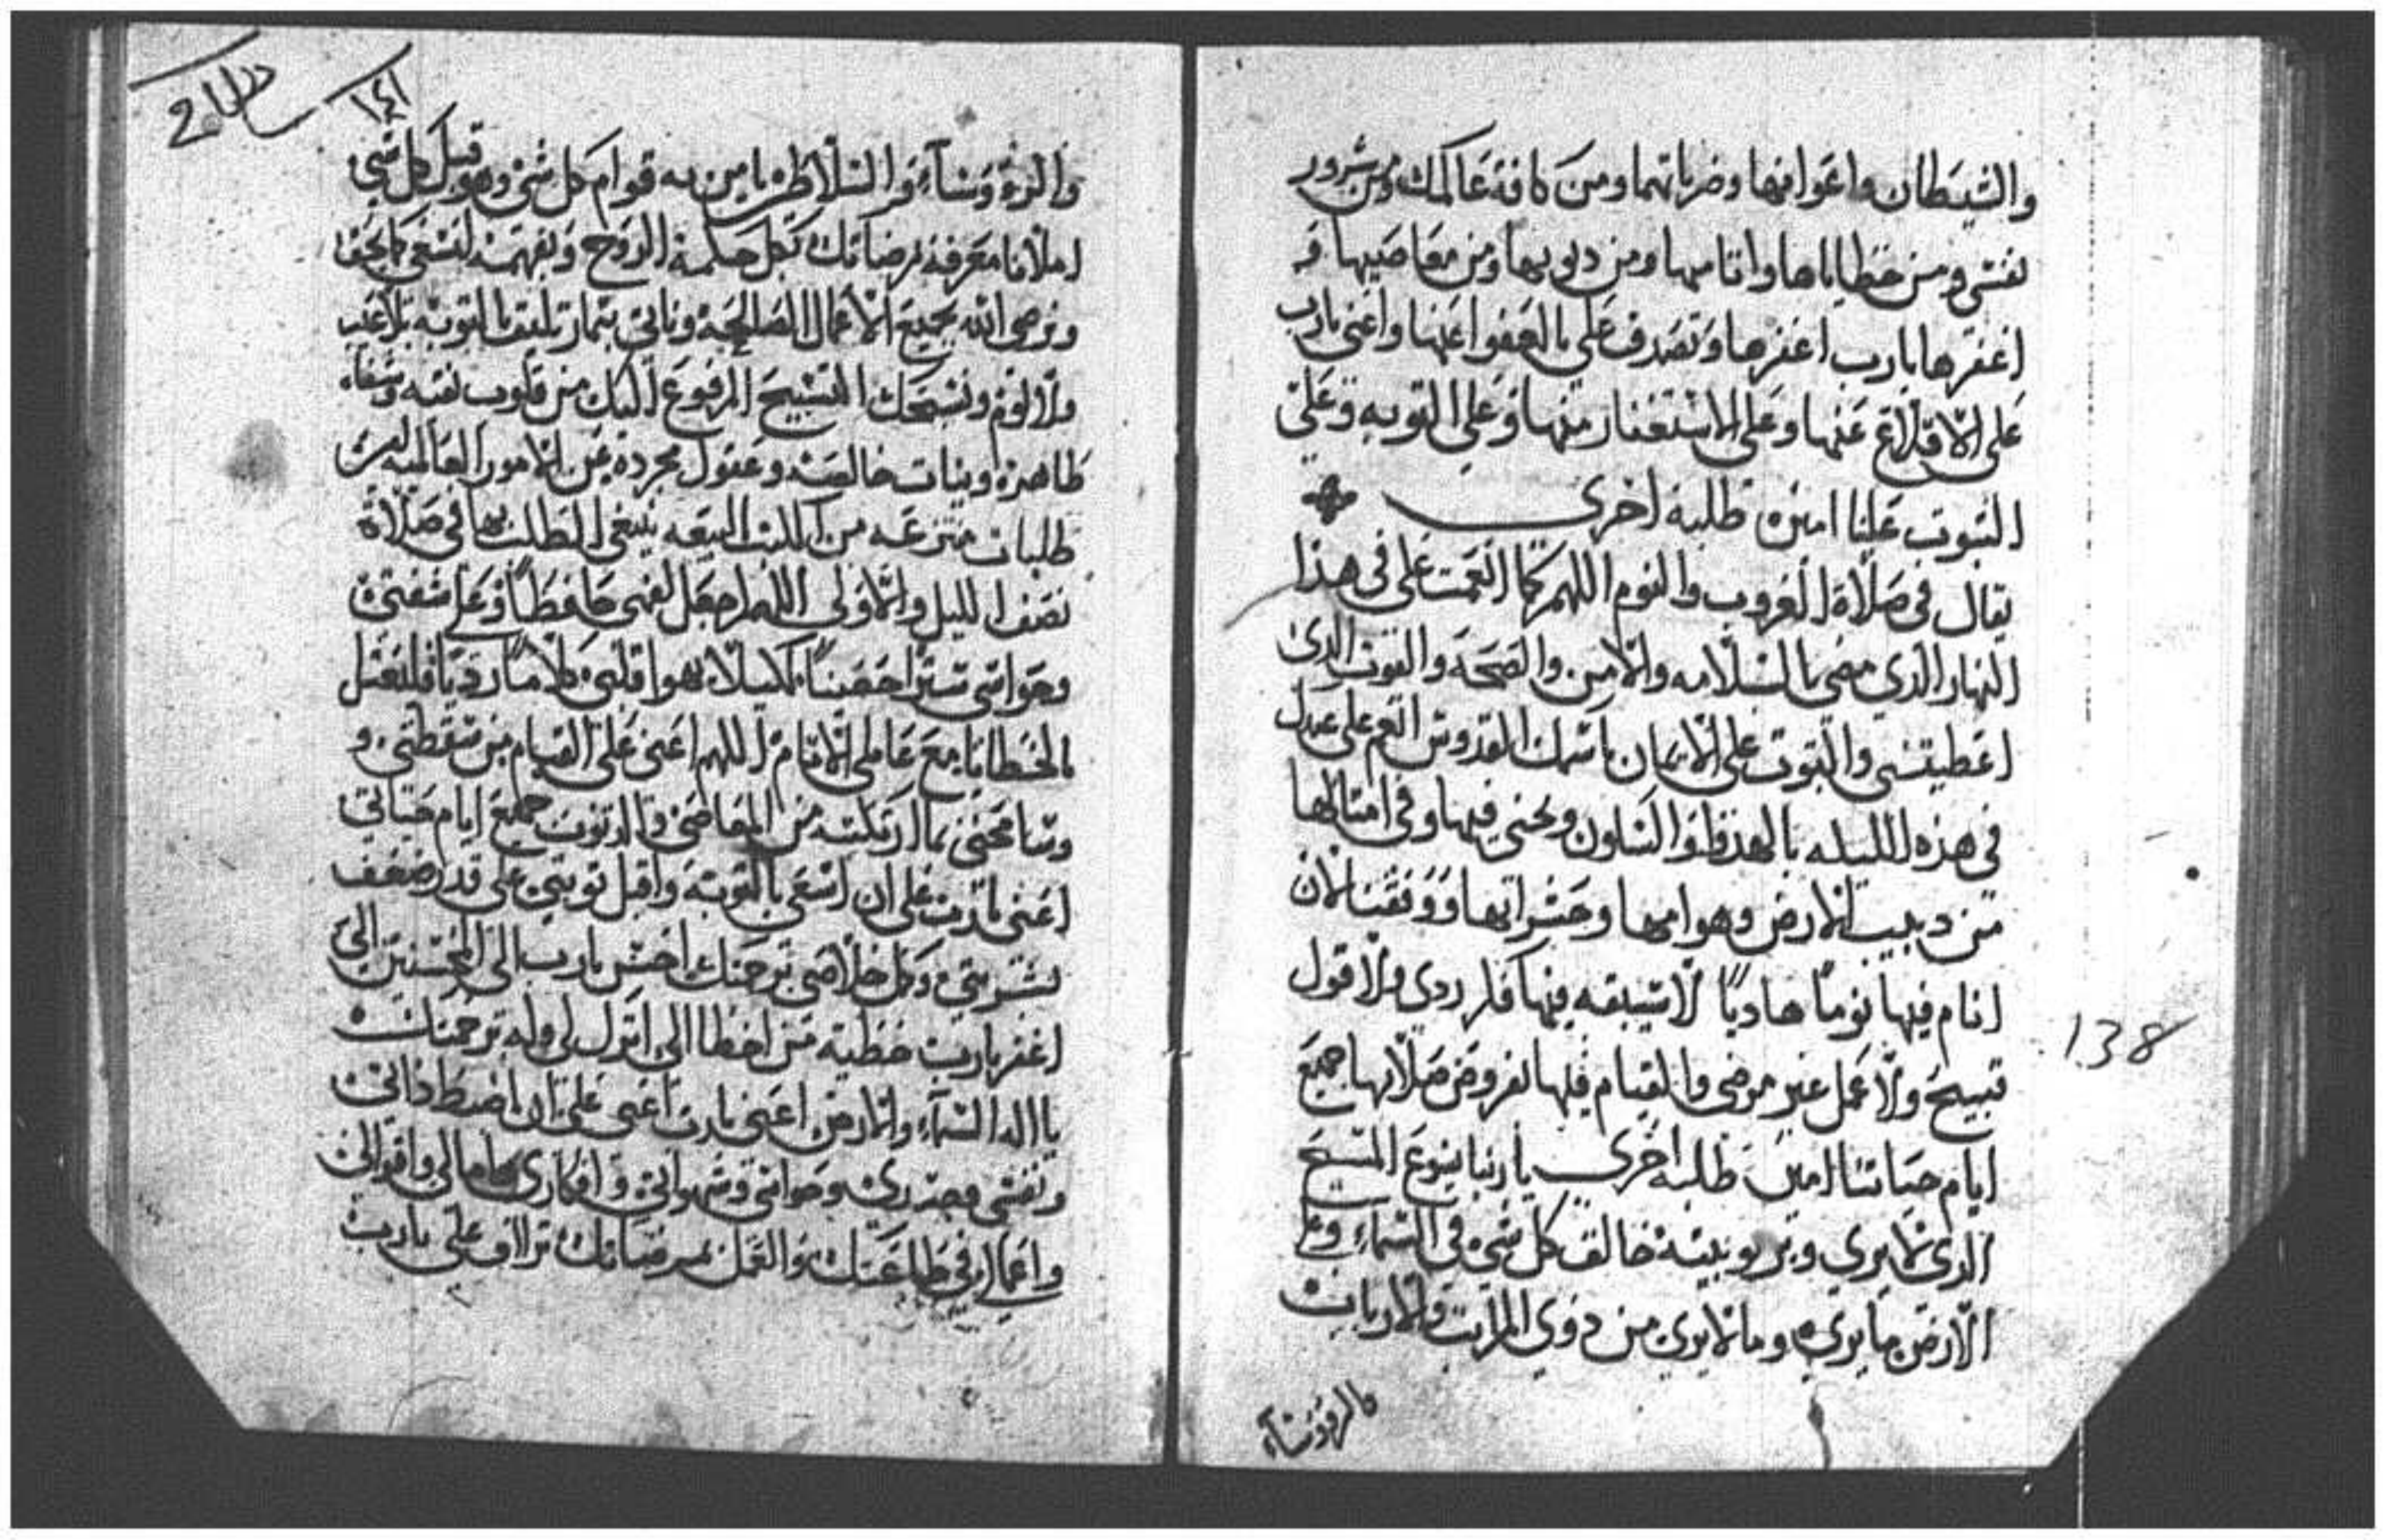 والشيطان واغوايهما وضرباتهما ومن كافة عالمك ومن شرور
نفسي ومن خطاياها واثامها ومن ديوبها ومن معاصيها و
اغفرها يارب اغفرها وتصدق علي بالعفوا عنها واعني يارب
على الاقلاع عنها وعلى الاستغفار منها وعلى التوبه وعلى
الثبوت علينا امين طلبة اخري
يقال في صلاة الغروب والنوم اللهم كما انعمت علي في هذا
النهار الذي مضى بالسلامه والامن والصحة والقوت الذى
اعطيتني والثبوت على الايمان باسمك القدوس انعم على عبدك
في هذه الليله بالهدوا والسكون ونجني فيها وفي امثالها
من دبيب الارض وهوامها وحشراتها ووفقنا لان
انام فيها نوما هاديا لا يسبقه فيها فكر ردى ولا قول
قبيح ولا عمل غير مرضي والقيام فيها لفروض صلاتها جميع
ايام حياتنا امين طلبه اخري يا ربنا يسوع المسيح
الذى لا يرى وبربوبيته خالق كل شي في السماء وعلى
الارض ما يرى وما لا يرى من ذوي المراتب والارباب
والروسآء
138
١٤١
والروسآء والسلاطين يا من به قوام كل شي وهو قبل كل شي
املانا معرفة مرضاتك بكل حكمة الروح وبفهمه لنسعى كما يحق
ونرضى الله بجميع الاعمال الصالحة وناتي بثمار تليق بالتوبه بلا عيب
ولا لوم ونسبحك التسبيح المرفوع اليك من قلوب نقيه وشفاه
طاهره ونيات خالصه وعقول مجرده عن الامور العالميه امين
طلبات منتزعه من البيعه ينبغي الطلب بها في صلاة
نصف الليل والاولى اللهم اجعل لفمي حافظا وعلى شفتي
وحواسي سترا حصينا كليلا يهوا قلبي كلاما رديا فليتعلل
بالخطايا مع عاملي الاثام اللهم اعني على القيام من سقطتي و
وسامحني بما ارتكبته من المعاصي والذنوب جميع ايام حياتي
اعني يارب على ان اسعى بالتوبة واقبل توبتي على قدر ضعف
بشريتي وكل خلاصي برحمتك احسن يارب الى المحسنين الي
اغفر يارب خطية من اخطا الي اترك لي وله برحمتك
يا اله السماء والارض اعني يارب اعني على ان اضبط ذاتي
ونفسي وجسدي وحواسي وشهواتي وافكاري وامالي واقوالي
واعمالي في طاعتك والعمل بمرضاتك تراف على يارب